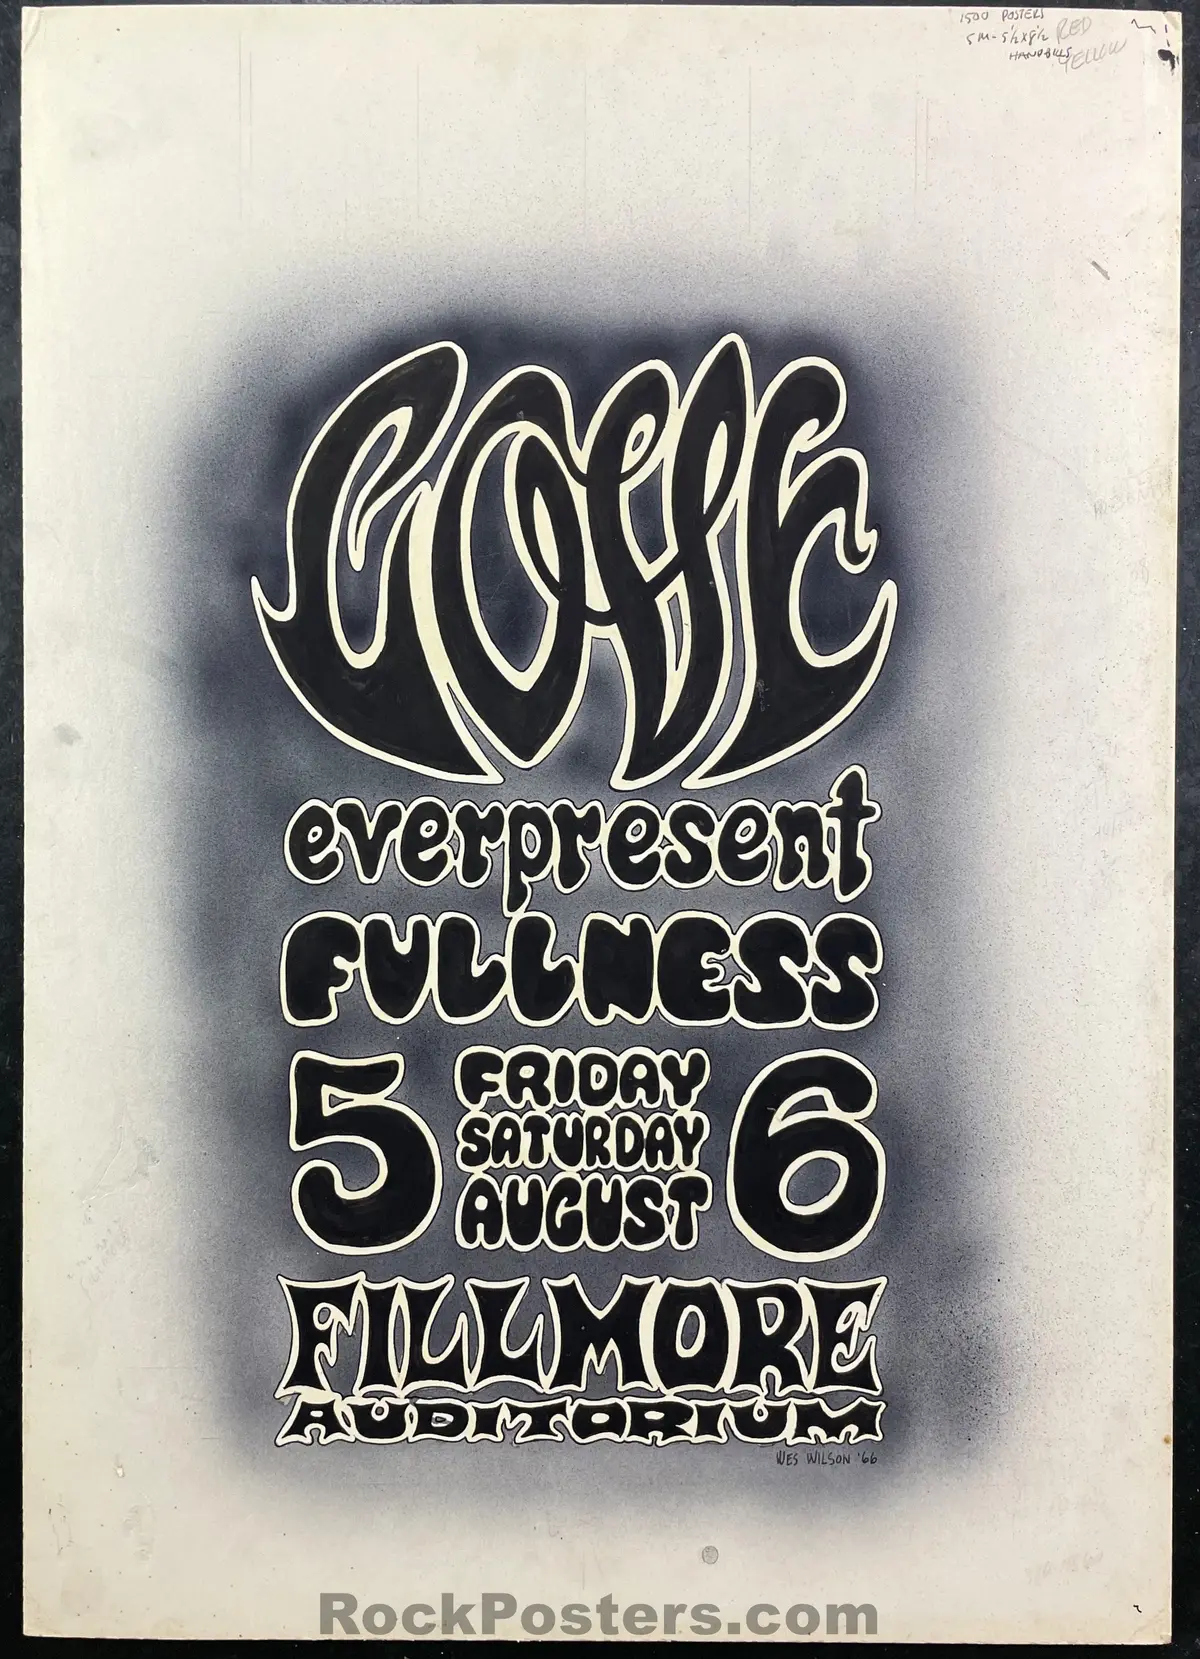 1500 POSTERS
5M - 5½ X 8½ RED
HANDBILLS YELLOW
LOVE
everpresent
FULLNESS
5 FRIDAY 6
SATURDAY
AUGUST
FILLMORE
AUDITORIUM
WES WILSON '66
RockPosters.com